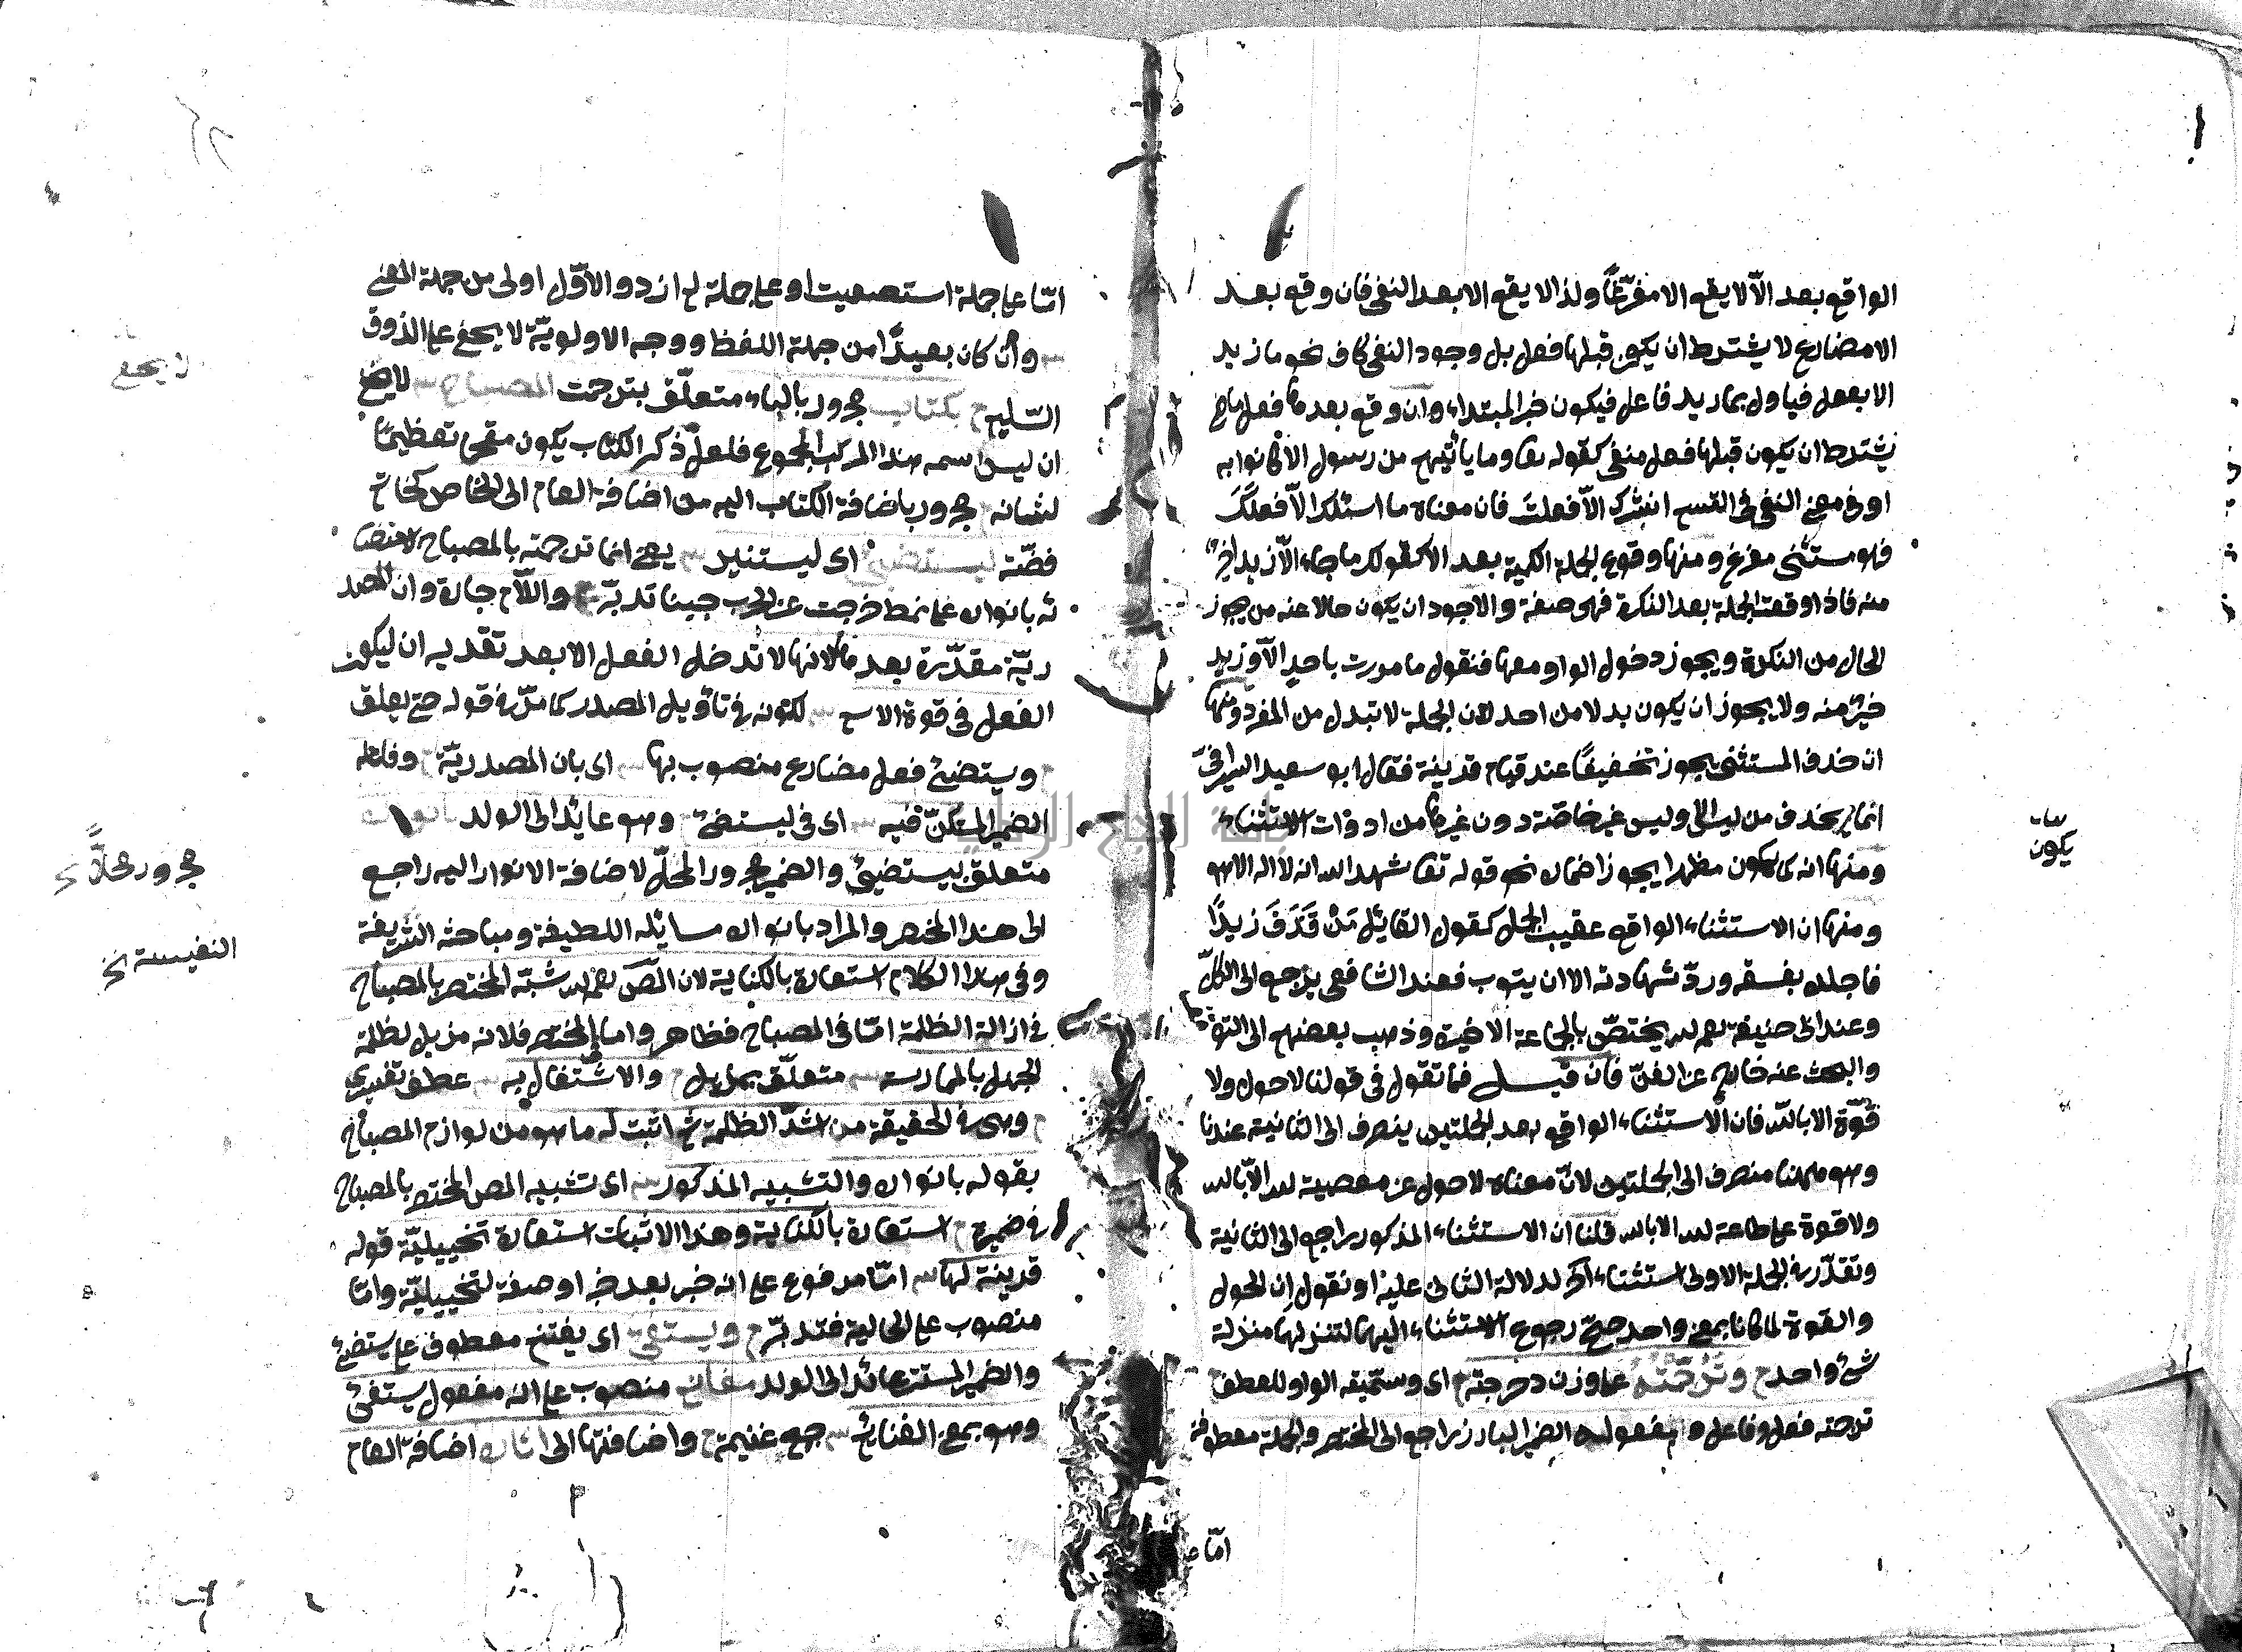 الواقع بعد الّا لا يقع الا مفرّغاً ولذا لا يقع الا بعد النفى فان وقع بعد
الا مضارع لا يشترط ان يكون قبلها فعل بل وجود النفى كاف نحو ما زيد
الا يفعل فياول بما زيد فاعل فيكون خبر المبتداء وان وقع بعدها فعل ماض
يشترط ان يكون قبلها فعل منفى كقوله تعا وما يأتيهم من رسول الا كانوا به
او فى معنى النفى فى القسم انشدك الّا فعلت فان معناه ما اسئلك الّا فعلك
فهو مستثنى مفرغ ومنها وقوع الجملة الكمية بعد الا كقولك ما جاء الّا زيد خير
منه فاذا وقعت الجملة بعد النكرة فهى صفة والاجود ان يكون حالا عند من يجوز
الحال من النكرة ويجوز دخول الواو معها فنقول ما مررت باحد الّا وزيد
خير منه ولا يجوز ان يكون بدلا من احد لان الجملة لا تبدل من المفرد ومنها
ان حذف المستثنى يجوز تخفيفًا عند قيام قرينة فقال ابو سعيد السيرافىّ
انما يحذف من ليس الا وليس غير خاصّة دون غيرها من ادوات الاستثناء
ومنها انه كما يكون مظهرا يجوز اضماره نحو قوله تعا شهد الله انه لا اله الا هو
ومنها ان الاستثناء الواقع عقيب الجمل كقول القائل مَنْ قَذَفَ زيدًا
فاجلده بفسقه وردّ شهادته الا ان يتوب فعند الشافعى يرجع الى الكلّ
وعند ابى حنيفة رحمه الله يختصّ بالجماعة الاخيرة وذهب بعضهم الى التوقف
والبحث عنه خارج عن الفنّ فان قيل فما تقول فى قولنا لا حول ولا
قوّة الا بالله فان الاستثناء الواقع بعد الجملتين ينصرف الى الثانية عندنا
وهو ههنا منصرف الى الجملتين لانّ معناه لا حول عن معصية الله الّا بالله
ولا قوة على طاعة الله الا بالله قلنا ان الاستثناء المذكور راجع الى الثانية
ونقدّر فى الجملة الاولى استثناء اخر لدلالة الثانى عليه او نقول ان الحول
والقوة لما كانا بمعنى واحد صحّ رجوع الاستثناء اليهما لتنزلهما منزلة
شئ واحد م وترجمته على وزن دحرجته م اى وسمّيته الواو للعطف
ترجمته فعل وفاعل ومفعوله الضمير البارز راجع الى المختصر والجملة معطوفة
امّا ع
يكون
امّا على جملة استصعبت او على جملة لم ازد والاوّل اولى من جهة المعنى
وان كان بعيدًا من جهة اللفظ ووجه الاولويّة لا يخفى على الذوق
السّليم بكتاب مجرور بالباء متعلّق بترجمت المصباح لا يخفى
ان ليس اسمه هذا المركب المجموع فلعلّ ذكر الكتاب يكون مقحما تعظيمًا
لشانه مجرور باضافة الكتاب اليه من اضافة العام الى الخاص كخاتم
فضّة ليستضئ اى ليستنير يعنى انما ترجمته بالمصباح لاستضا
ئه بانواره على نمط خرجت عن الحرب جبنا تدبّر واللام جارة وان المصد
ريّة مقدّرة بعدها لانها لا تدخل الفعل الا بعد تقدير ان ليكون
الفعل فى قوة الاسم لكونه فى تأويل المصدر كما مرّ فى قوله حتى يعلق
ويستضئ فعل مضارع منصوب بها اى بان المصدريّة وفاعله
الضمير المستكنّ فيه اى فى ليستضئ وهو عايد الى الولد بانواره
متعلق بيستضئ والضمير مجرور المحلّ لاضافة الانوار اليه راجع
الى هذا المختصر والمراد بانواره مسائله اللطيفة ومباحثه الشريفة
وفى هذا الكلام استعارة بالكناية لان المص رحمه الله شبّه المختصر بالمصباح
فى ازالة الظلمة امّا فى المصباح فظاهر واما فى المختصر فلانه مزيل لظلمة
الجهل بالممارسة متعلّق بمزيل والاشتغال به عطف تفسيرى
وهى فى الحقيقة من اشدّ الظلمة ثم اثبت له ما هو من لوازم المصباح
بقوله بانواره والتشبيه المذكور اى تشبيه المص المختصر بالمصباح
فى ضميره استعارة بالكناية وهذا الاثبات استعارة تخييليّة قوله
قرينة لها امّا مرفوع على انه خبر بعد خبر او صفة لتخييليّة وامّا
منصوب على الحالية فتدبّر م ويستغنى اى يغتنم معطوف على يستضئ
والضمير المستتر عائد الى الولد مغانم منصوب على انه مفعول يستغنى
وهو بمعنى الغنائم جمع غنيمة واضافتها الى اثاره اضافة العام
لا يخفى
مجرور محلًّا
النفيسة نخ